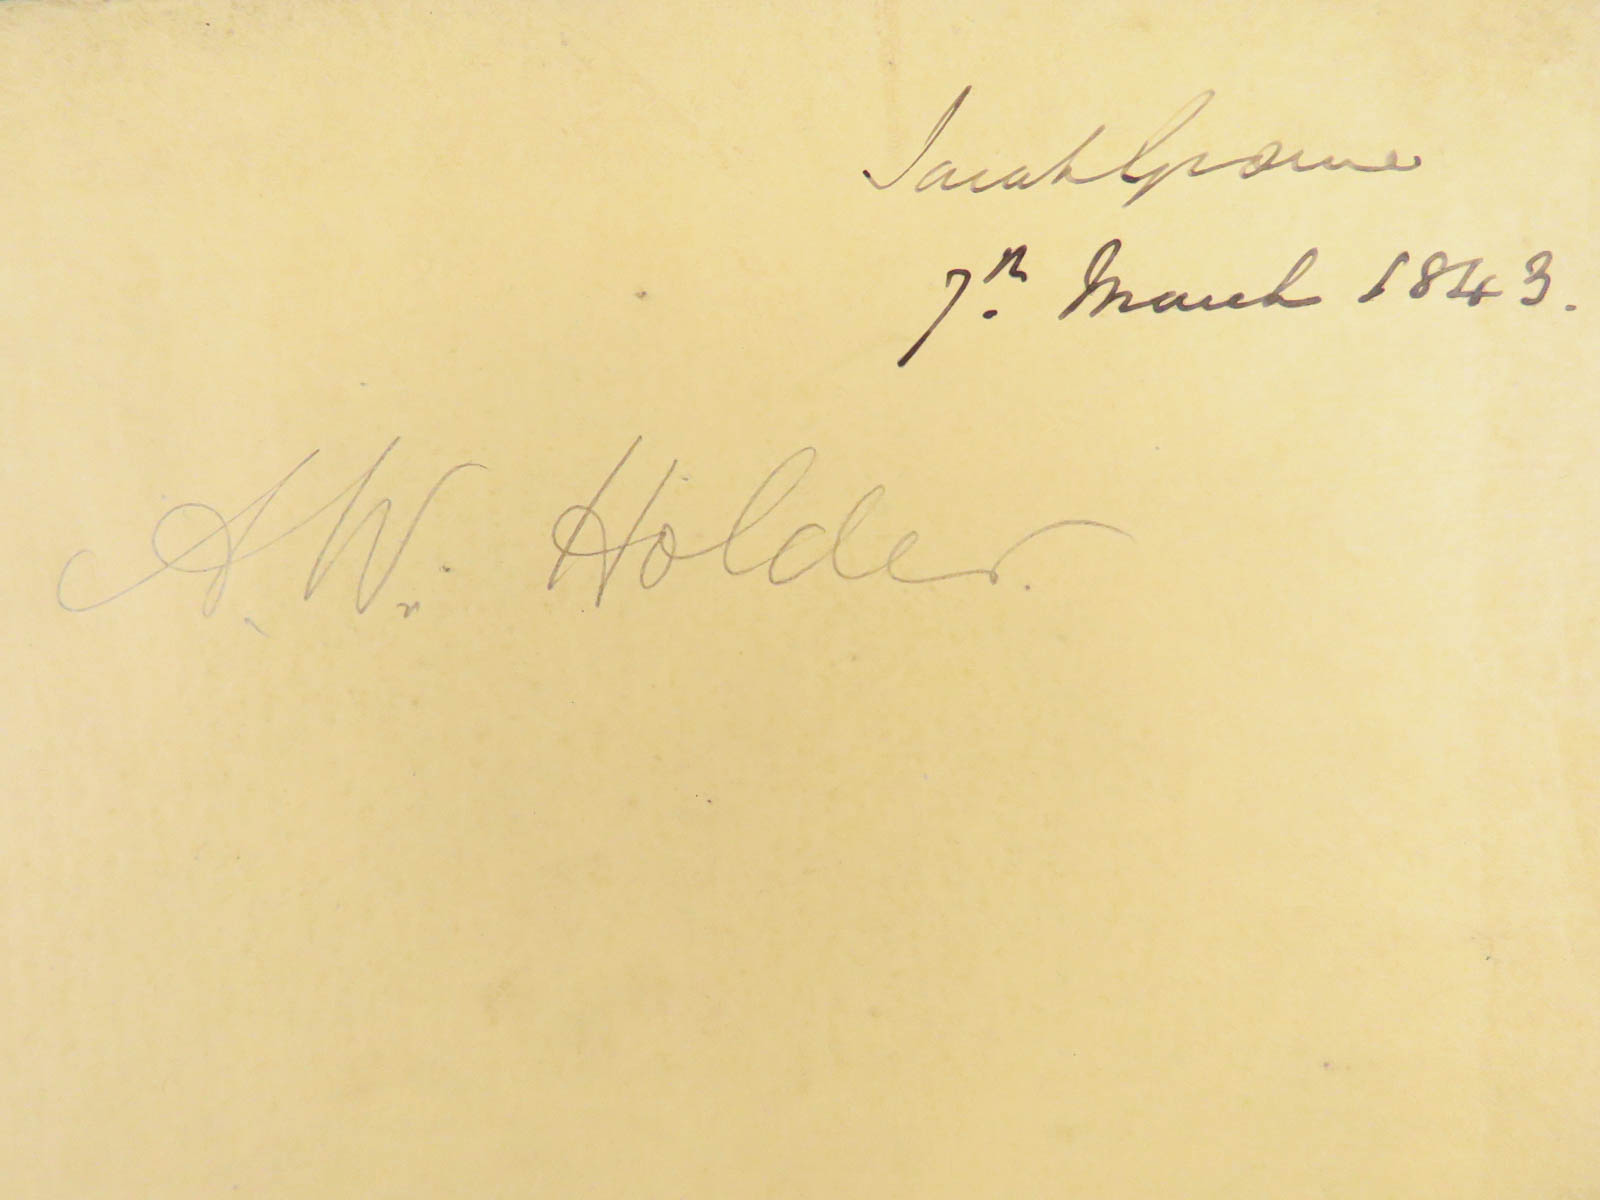 Sarah
7th March 1843.
A. W. Holder.